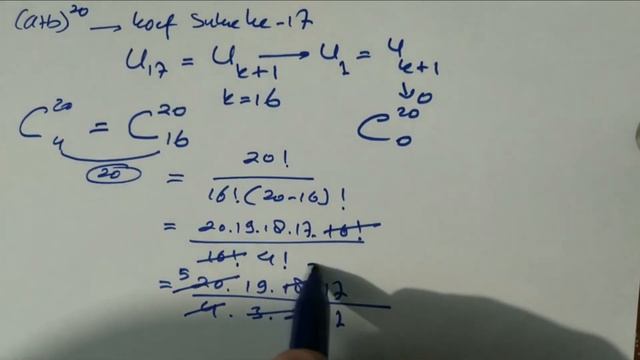 (a+b)^20 → koef suku ke-17
U_17 = U_{k+1} → U_1 = U_{k+1}
k=16 ↓ 0
C^20_4 = C^20_16 C^20_0
20
= 20! / 16! (20-16)!
= 20.19.18.17.16! / 16! 4!
= 5 20. 19. 18 17 / 4. 3. 1